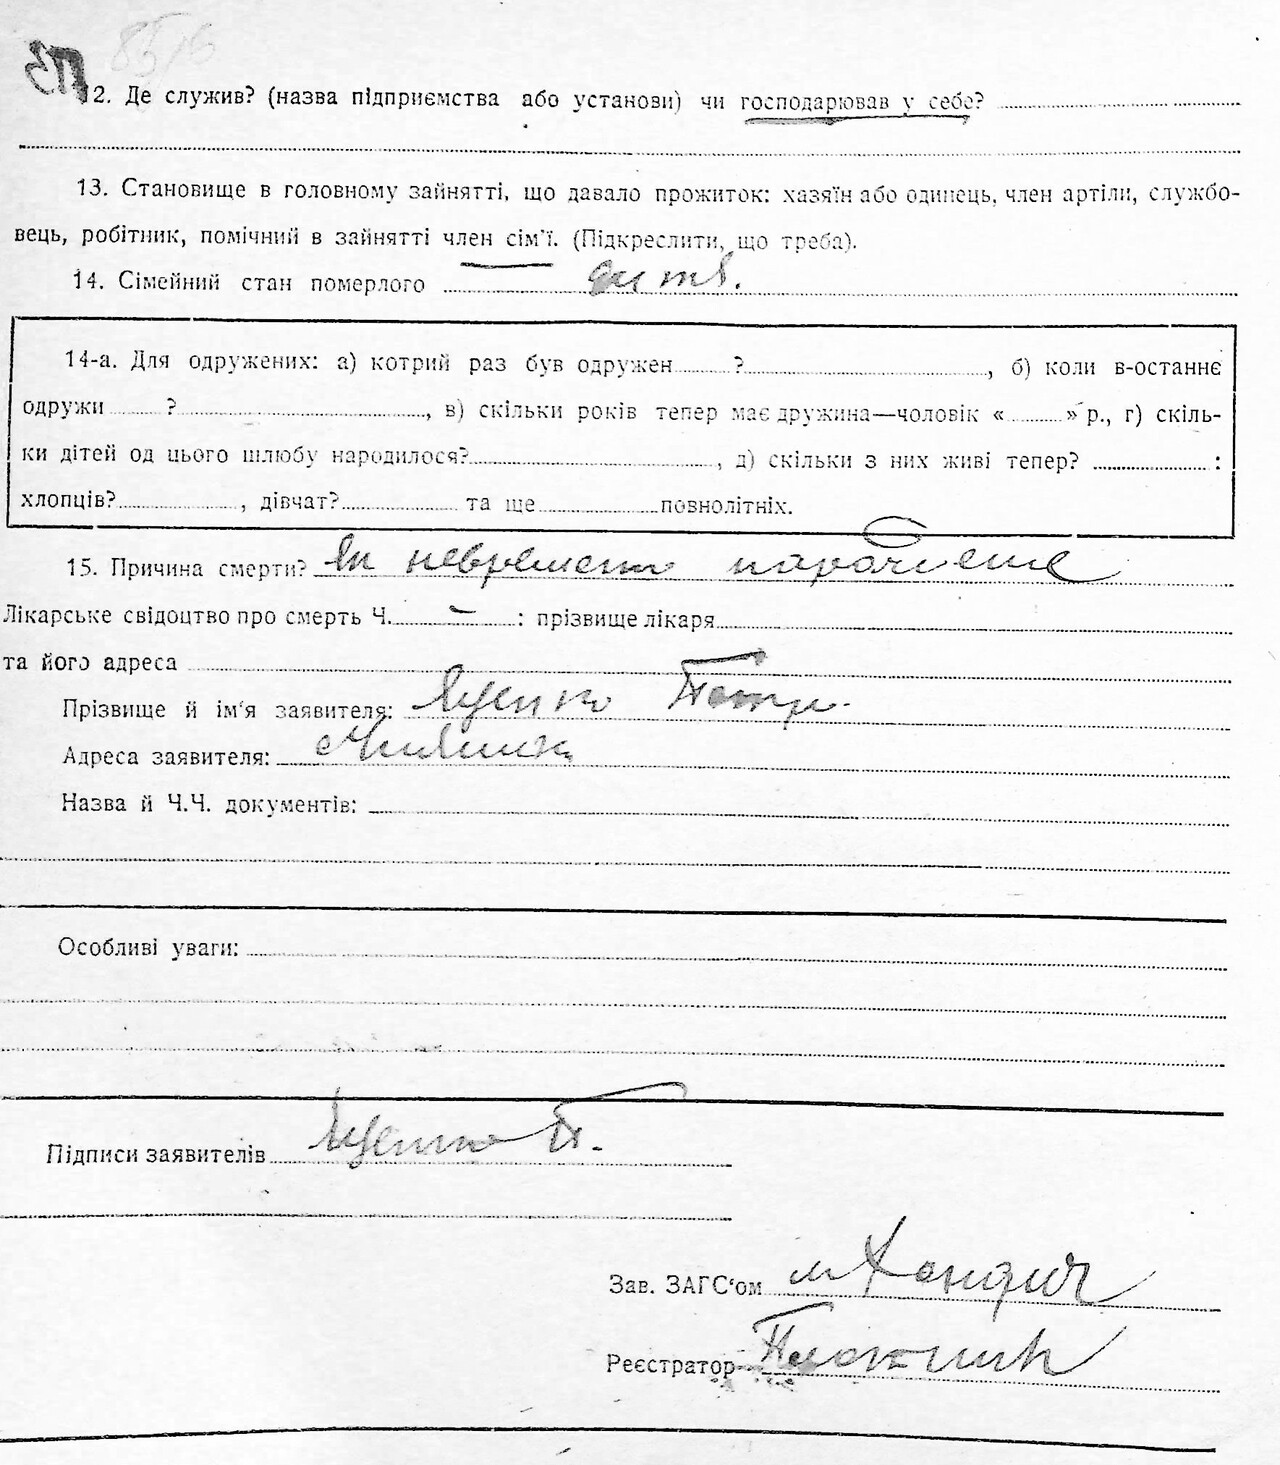 8516
12. Де служив? (назва підприємства або установи) чи господарював у себе?
13. Становище в головному зайнятті, що давало прожиток: хазяїн або одинець, член артіли, службо-
вець, робітник, помічний в зайнятті член сім'ї. (Підкреслити, що треба).
14. Сімейний стан померлого дитя.
14-а. Для одружених: а) котрий раз був одружен ?, б) коли в-останнє
одружи ?, в) скільки років тепер має дружина—чоловік « » р., г) скіль-
ки дітей од цього шлюбу народилося?, д) скільки з них живі тепер? :
хлопців?, дівчат? та ще повнолітніх.
15. Причина смерти?
Лікарське свідоцтво про смерть Ч. – : прізвище лікаря
та його адреса
Прізвище й ім'я заявителя: Яценко Петр.
Адреса заявителя:
Назва й Ч.Ч. документів:
Особливі уваги:
Підписи заявителів Яценко П.
Зав. ЗАГС'ом
Реєстратор